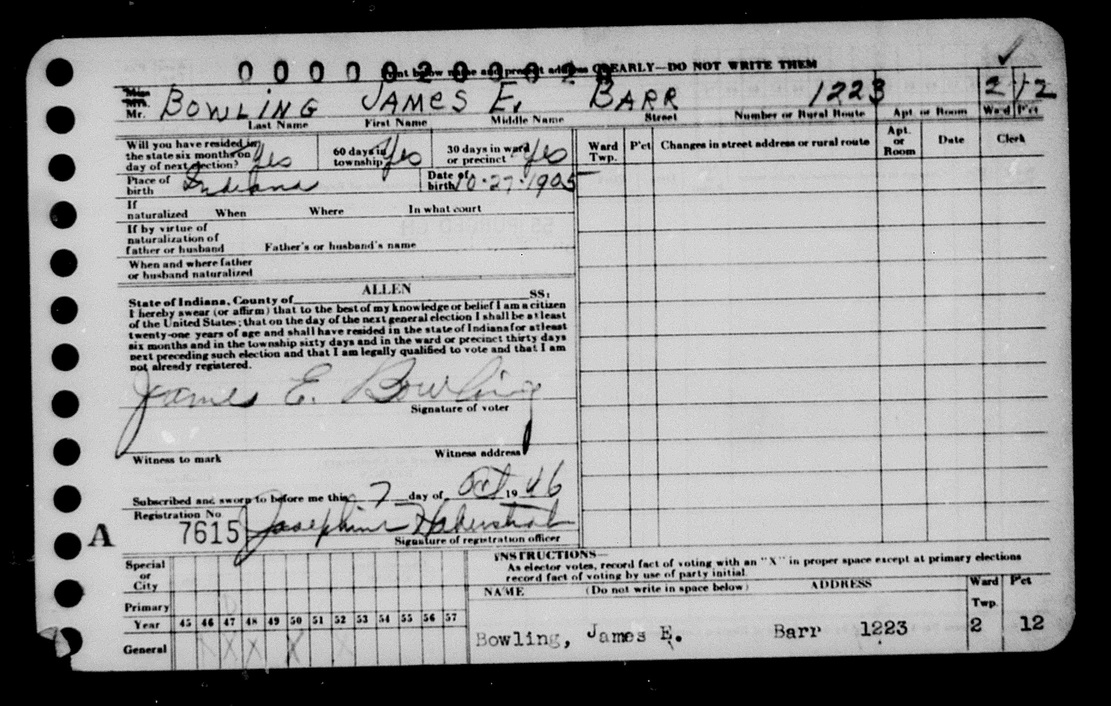 0 0 0 0 0 2 0 0 0 2 0
Print below name and present address CLEARLY—DO NOT WRITE THEM
Miss
Mrs.
Mr. BOWLING JAMES E. BARR 1223 2 12
Last Name First Name Middle Name Street Number or Rural Route Apt. or Room Ward P'ct
Will you have resided in the state six months on day of next election? Yes 60 days in township Yes 30 days in ward or precinct Yes
Ward Twp. P'ct Changes in street address or rural route Apt. or Room Date Clerk
Place of birth Indiana Date of birth 10-27-1905
If naturalized When Where In what court
If by virtue of naturalization of father or husband Father's or husband's name
When and where father or husband naturalized
ALLEN
State of Indiana, County of SS:
I hereby swear (or affirm) that to the best of my knowledge or belief I am a citizen
of the United States; that on the day of the next general election I shall be at least
twenty-one years of age and shall have resided in the state of Indiana for at least
six months and in the township sixty days and in the ward or precinct thirty days
next preceding such election and that I am legally qualified to vote and that I am
not already registered.
James E. Bowling
Signature of voter
Witness to mark Witness address
Subscribed and sworn to before me this 7 day of Oct 19 46
Registration No
A 7615 Josephine
Signature of registration officer
INSTRUCTIONS—
As elector votes, record fact of voting with an "X" in proper space except at primary elections
record fact of voting by use of party initial.
Special or City
Primary
Year 45 46 47 48 49 50 51 52 53 54 55 56 57
General X X X X X
NAME (Do not write in space below) ADDRESS Ward Twp. P'ct
Bowling, James E. Barr 1223 2 12